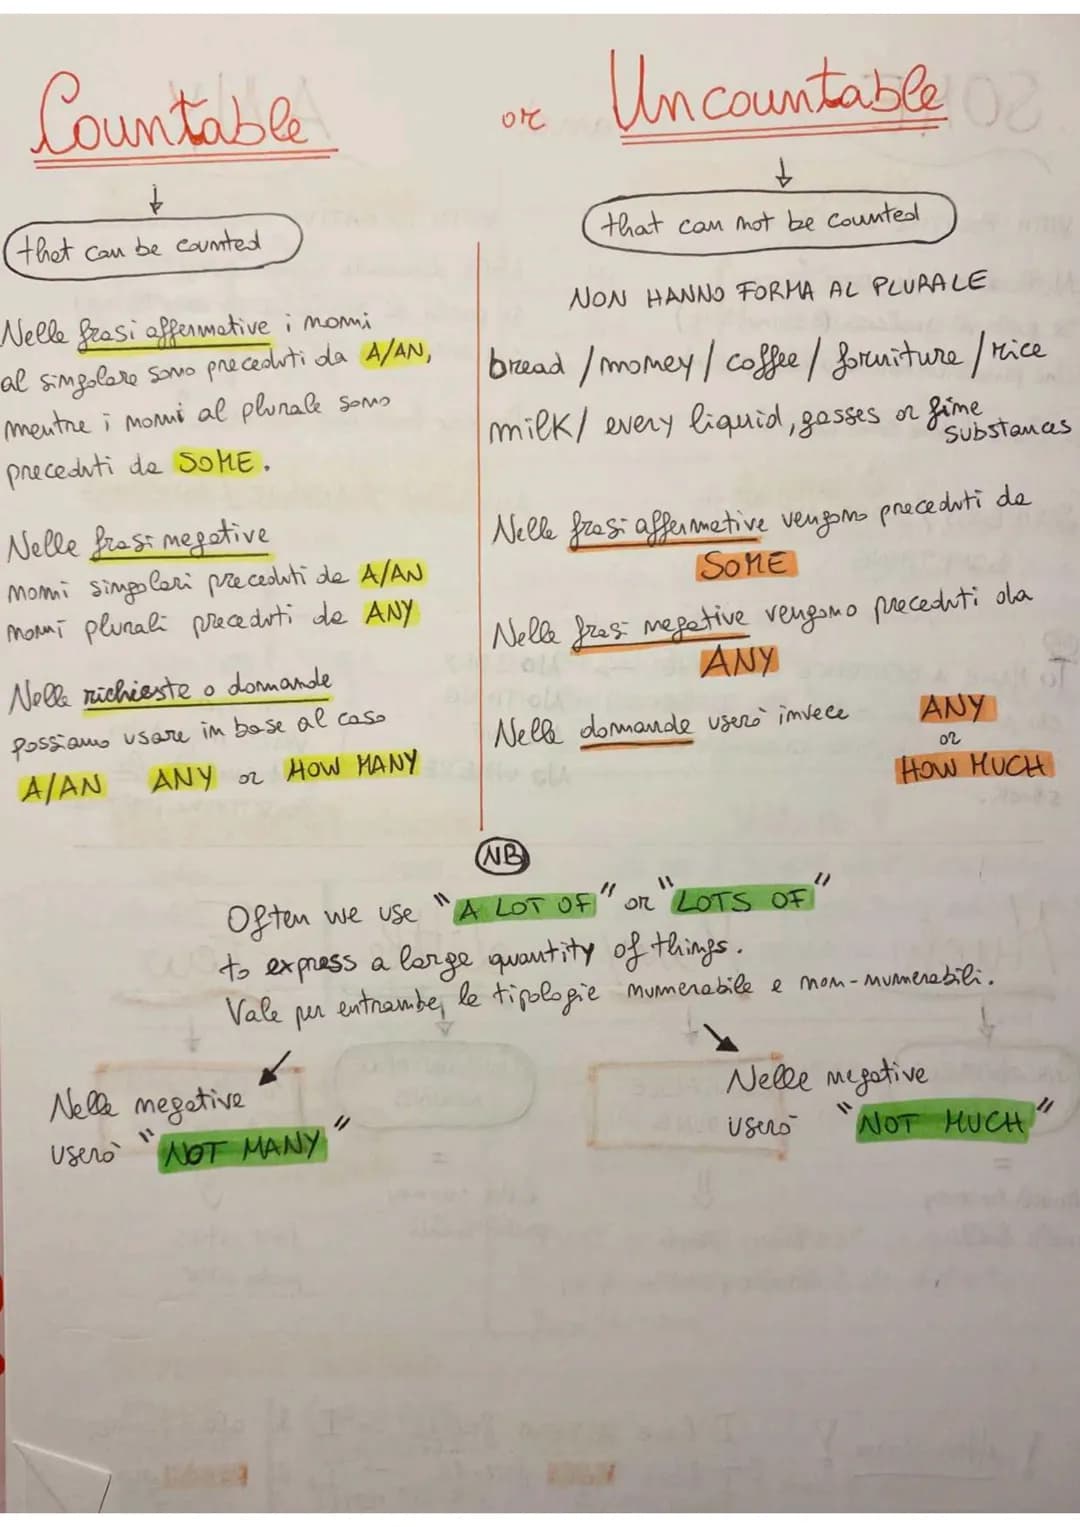 Countable or Uncountable
that can be counted
Nelle frasi affermative i nomi
al singolare sono preceduti da A/AN,
mentre i nomi al plurale sono
preceduti da SOME.
Nelle frasi negative
nomi singolari preceduti da A/AN
nomi plurali preceduti da ANY
Nelle richieste o domande
possiamo usare in base al caso
A/AN ANY or HOW MANY
that can not be counted
NON HANNO FORMA AL PLURALE
bread / money / coffee / forniture / rice
milk / every liquid, gasses or fine
substances
Nelle frasi affermative vengono preceduti da
SOME
Nelle frasi negative vengono preceduti da
ANY
Nelle domande userò invece ANY
or
HOW MUCH
NB
Often we use "A LOT OF" or "LOTS OF"
to express a large quantity of things.
Vale per entrambe le tipologie numerabile e non-numerabili.
Nelle negative
userò "NOT MANY"
Nelle negative
userò "NOT MUCH"